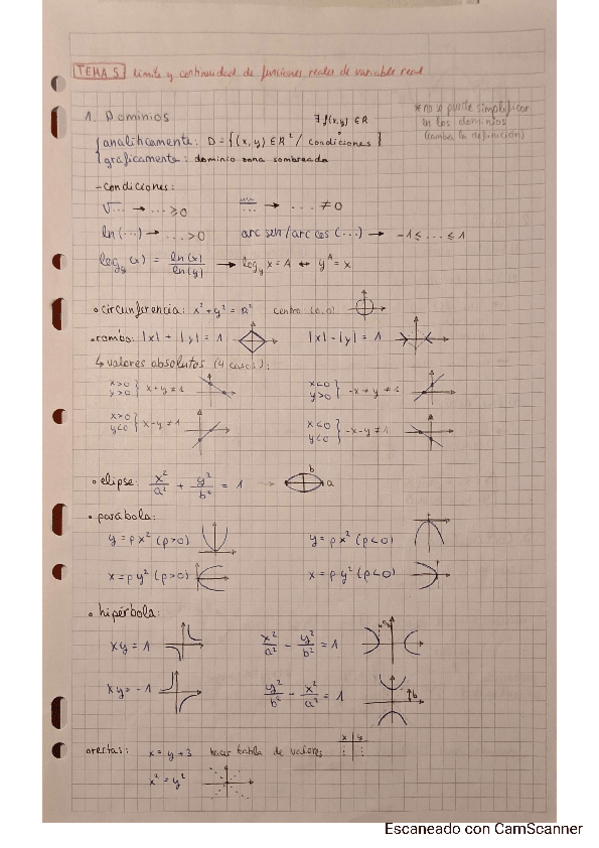 TEMA 5 límite y continuidad de funciones reales de variable real
1. Dominios
∃ f(x,y) ∈ R
* no se puede simplificar
en los dominios
(cambia la definición)
analíticamente: D = {(x,y) ∈ R² / condiciones}
gráficamente: dominio zona sombreada
- condiciones:
√... → ... ≥ 0
... → ... ≠ 0
ln(...) → ... > 0
arc sen/arc cos (...) → -1 ≤ ... ≤ 1
log_y (x) = ln(x)/ln(y) → log_y x = A ↔ y^A = x
• circunferencia: x² + y² = R² centro (0,0)
• rombo: |x| + |y| = 1
|x| - |y| = 1
↳ valores absolutos (4 casos):
x>0 y>0 } x + y ≠ 1
x<0 y>0 } -x + y ≠ 1
x>0 y<0 } x - y ≠ 1
x<0 y<0 } -x - y ≠ 1
• elipse: x²/a² + y²/b² = 1 → b a
• parábola:
y = p x² (p>0)
y = p x² (p<0)
x = p y² (p>0)
x = p y² (p<0)
• hipérbola:
xy = 1
x²/a² - y²/b² = 1
xy = -1
y²/b² - x²/a² = 1
b
x = y + 3 hacer tabla de valores x y
x² = y²
Escaneado con CamScanner